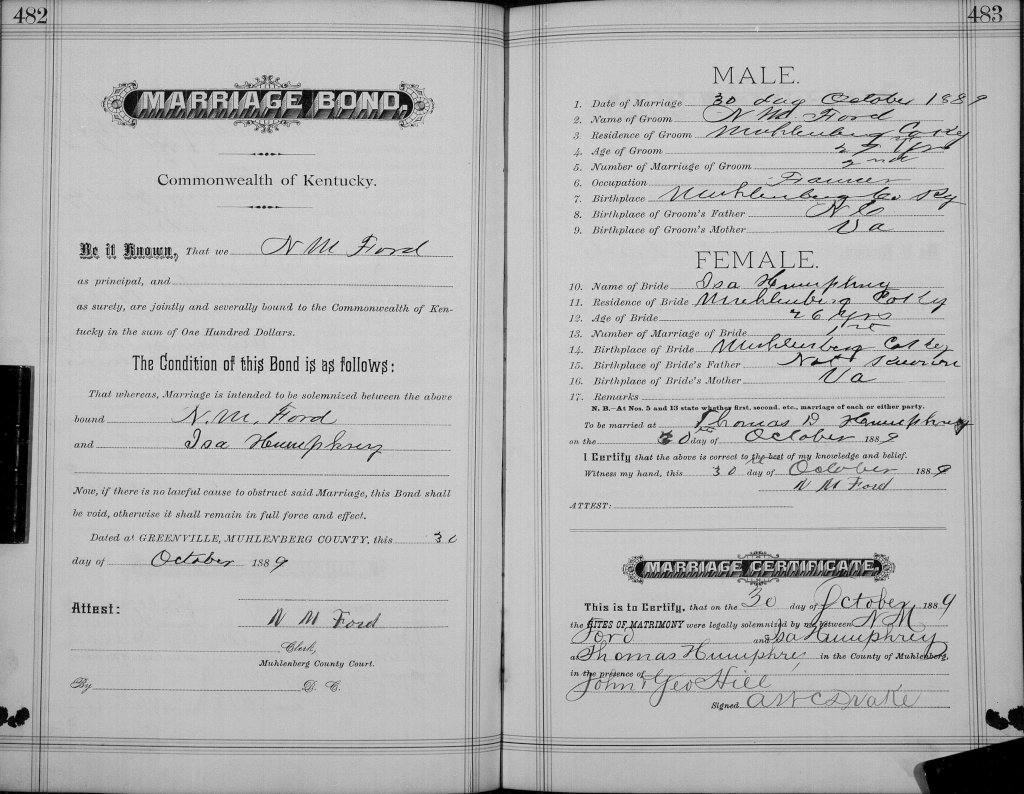 482
MARRIAGE BOND.
Commonwealth of Kentucky.
Be it Known, That we N M Ford
as principal, and
as surety, are jointly and severally bound to the Commonwealth of Ken-
tucky in the sum of One Hundred Dollars.
The Condition of this Bond is as follows:
That whereas, Marriage is intended to be solemnized between the above
bound N. M. Ford
and Isa Humphrey
Now, if there is no lawful cause to obstruct said Marriage, this Bond shall
be void, otherwise it shall remain in full force and effect.
Dated at GREENVILLE, MUHLENBERG COUNTY, this 30
day of October 1889
Attest:
N M Ford
Clerk,
Muhlenberg County Court.
By D. C.
483
MALE.
1. Date of Marriage 30 day October 1889
2. Name of Groom N M Ford
3. Residence of Groom Muhlenberg Co Ky
4. Age of Groom 27 yrs
5. Number of Marriage of Groom 2nd
6. Occupation Farmer
7. Birthplace Muhlenberg Co Ky
8. Birthplace of Groom's Father N C
9. Birthplace of Groom's Mother Va
FEMALE.
10. Name of Bride Isa Humphrey
11. Residence of Bride Muhlenberg Co Ky
12. Age of Bride 26 yrs
13. Number of Marriage of Bride 1st
14. Birthplace of Bride Muhlenberg Co Ky
15. Birthplace of Bride's Father Not
16. Birthplace of Bride's Mother Va
17. Remarks
N. B.—At Nos. 5 and 13 state whether first, second, etc., marriage of each or either party.
To be married at Thomas D Humphrey
on the 30 day of October 1889
I Certify that the above is correct to the best of my knowledge and belief.
Witness my hand, this 30 day of October 1889
N M Ford
ATTEST:
MARRIAGE CERTIFICATE.
This is to Certify, that on the 30 day of October 1889
the RITES OF MATRIMONY were legally solemnized by me between N M
Ford and Isa Humphrey
at Thomas Humphrey in the County of Muhlenberg,
in the presence of John & Geo Hill
Signed Drake